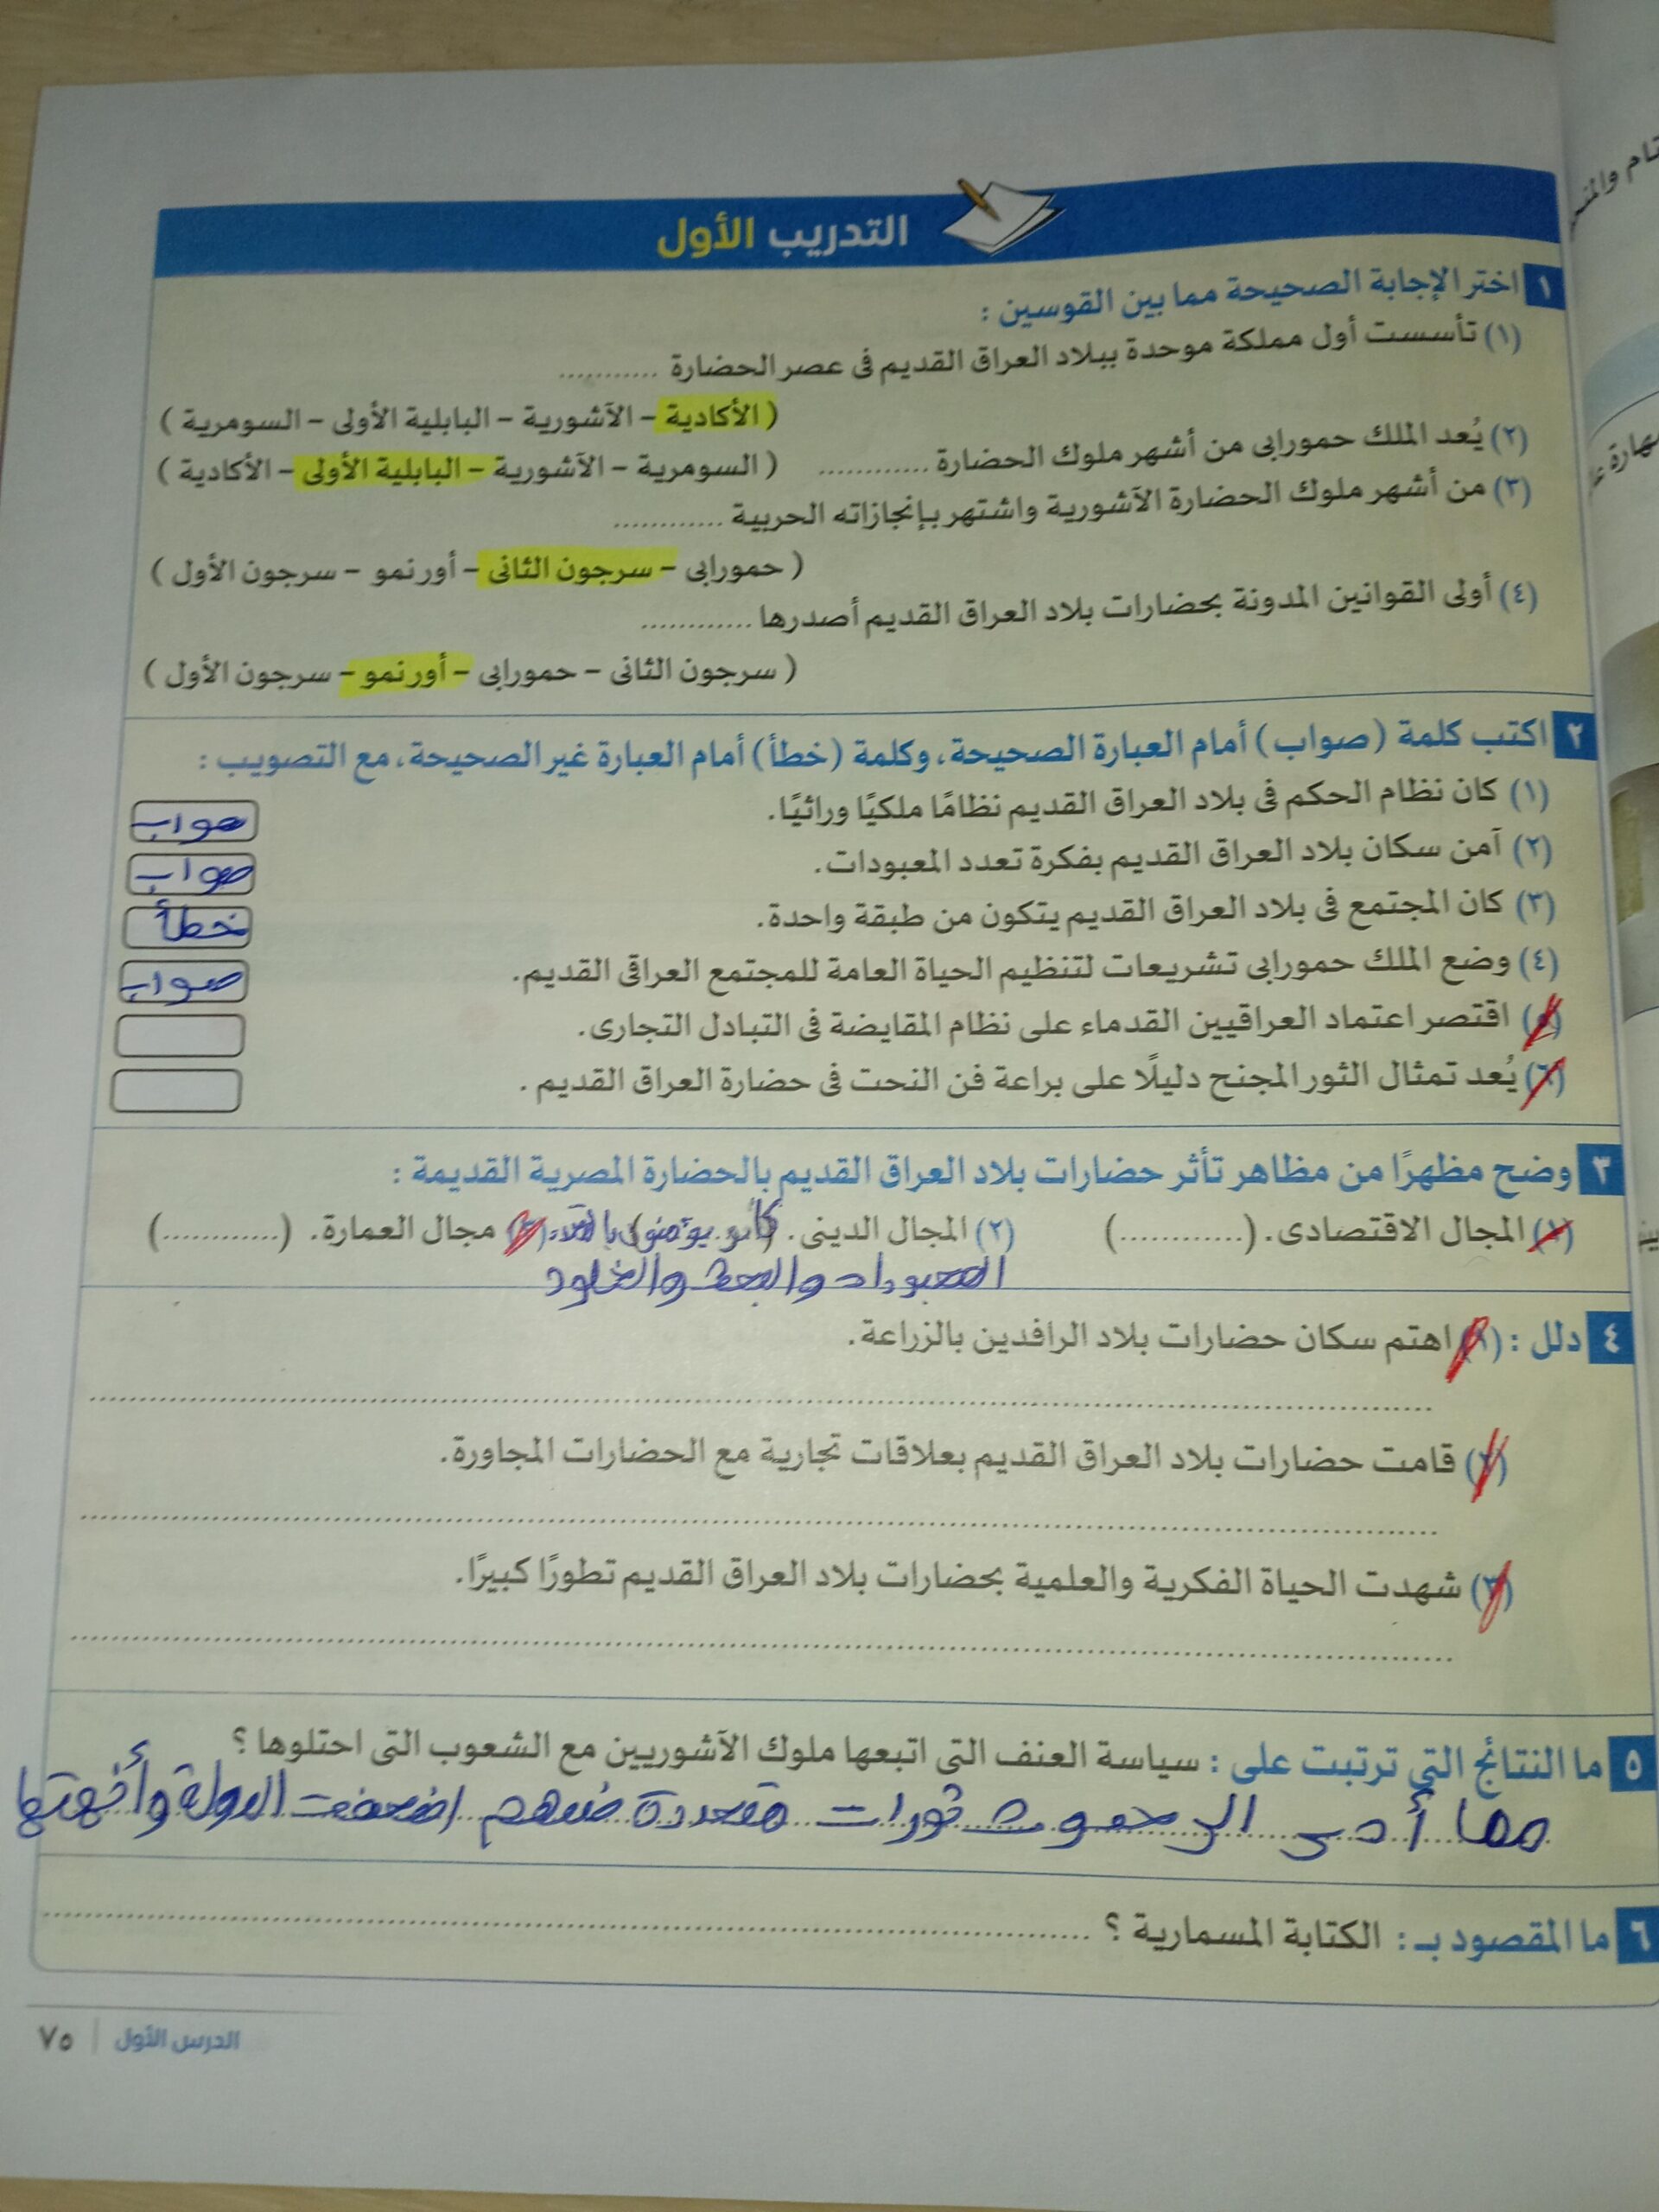 التدريب الأول
١ اختر الإجابة الصحيحة مما بين القوسين :
(١) تأسست أول مملكة موحدة ببلاد العراق القديم فى عصر الحضارة ............
( الأكادية – الآشورية – البابلية الأولى – السومرية )
(٢) يُعد الملك حمورابى من أشهر ملوك الحضارة ............ ( السومرية – الآشورية – البابلية الأولى – الأكادية )
(٣) من أشهر ملوك الحضارة الآشورية واشتهر بإنجازاته الحربية ............
( حمورابى – سرجون الثانى – أورنمو – سرجون الأول )
(٤) أولى القوانين المدونة بحضارات بلاد العراق القديم أصدرها ............
( سرجون الثانى – حمورابى – أورنمو – سرجون الأول )
٢ اكتب كلمة (صواب) أمام العبارة الصحيحة، وكلمة (خطأ) أمام العبارة غير الصحيحة، مع التصويب :
(١) كان نظام الحكم فى بلاد العراق القديم نظامًا ملكيًا وراثيًا. صواب
(٢) آمن سكان بلاد العراق القديم بفكرة تعدد المعبودات. صواب
(٣) كان المجتمع فى بلاد العراق القديم يتكون من طبقة واحدة. خطأ
(٤) وضع الملك حمورابى تشريعات لتنظيم الحياة العامة للمجتمع العراقى القديم. صواب
(٥) اقتصر اعتماد العراقيين القدماء على نظام المقايضة فى التبادل التجارى.
(٦) يُعد تمثال الثور المجنح دليلًا على براعة فن النحت فى حضارة العراق القديم .
٣ وضح مظهرًا من مظاهر تأثر حضارات بلاد العراق القديم بالحضارة المصرية القديمة :
(١) المجال الاقتصادى. (............) (٢) المجال الدينى. يؤمنون (٣) مجال العمارة. (............)
المعبودات والبعث والخلود
٤ دلل : (١) اهتم سكان حضارات بلاد الرافدين بالزراعة.
(٢) قامت حضارات بلاد العراق القديم بعلاقات تجارية مع الحضارات المجاورة.
(٣) شهدت الحياة الفكرية والعلمية بحضارات بلاد العراق القديم تطورًا كبيرًا.
٥ ما النتائج التى ترتبت على : سياسة العنف التى اتبعها ملوك الآشوريين مع الشعوب التى احتلوها ؟
مما أدى الى حدوث ثورات متعددة ضدهم اضعفت الدولة وأنهتها
٦ ما المقصود بـ : الكتابة المسمارية ؟
الدرس الأول | ٧٥